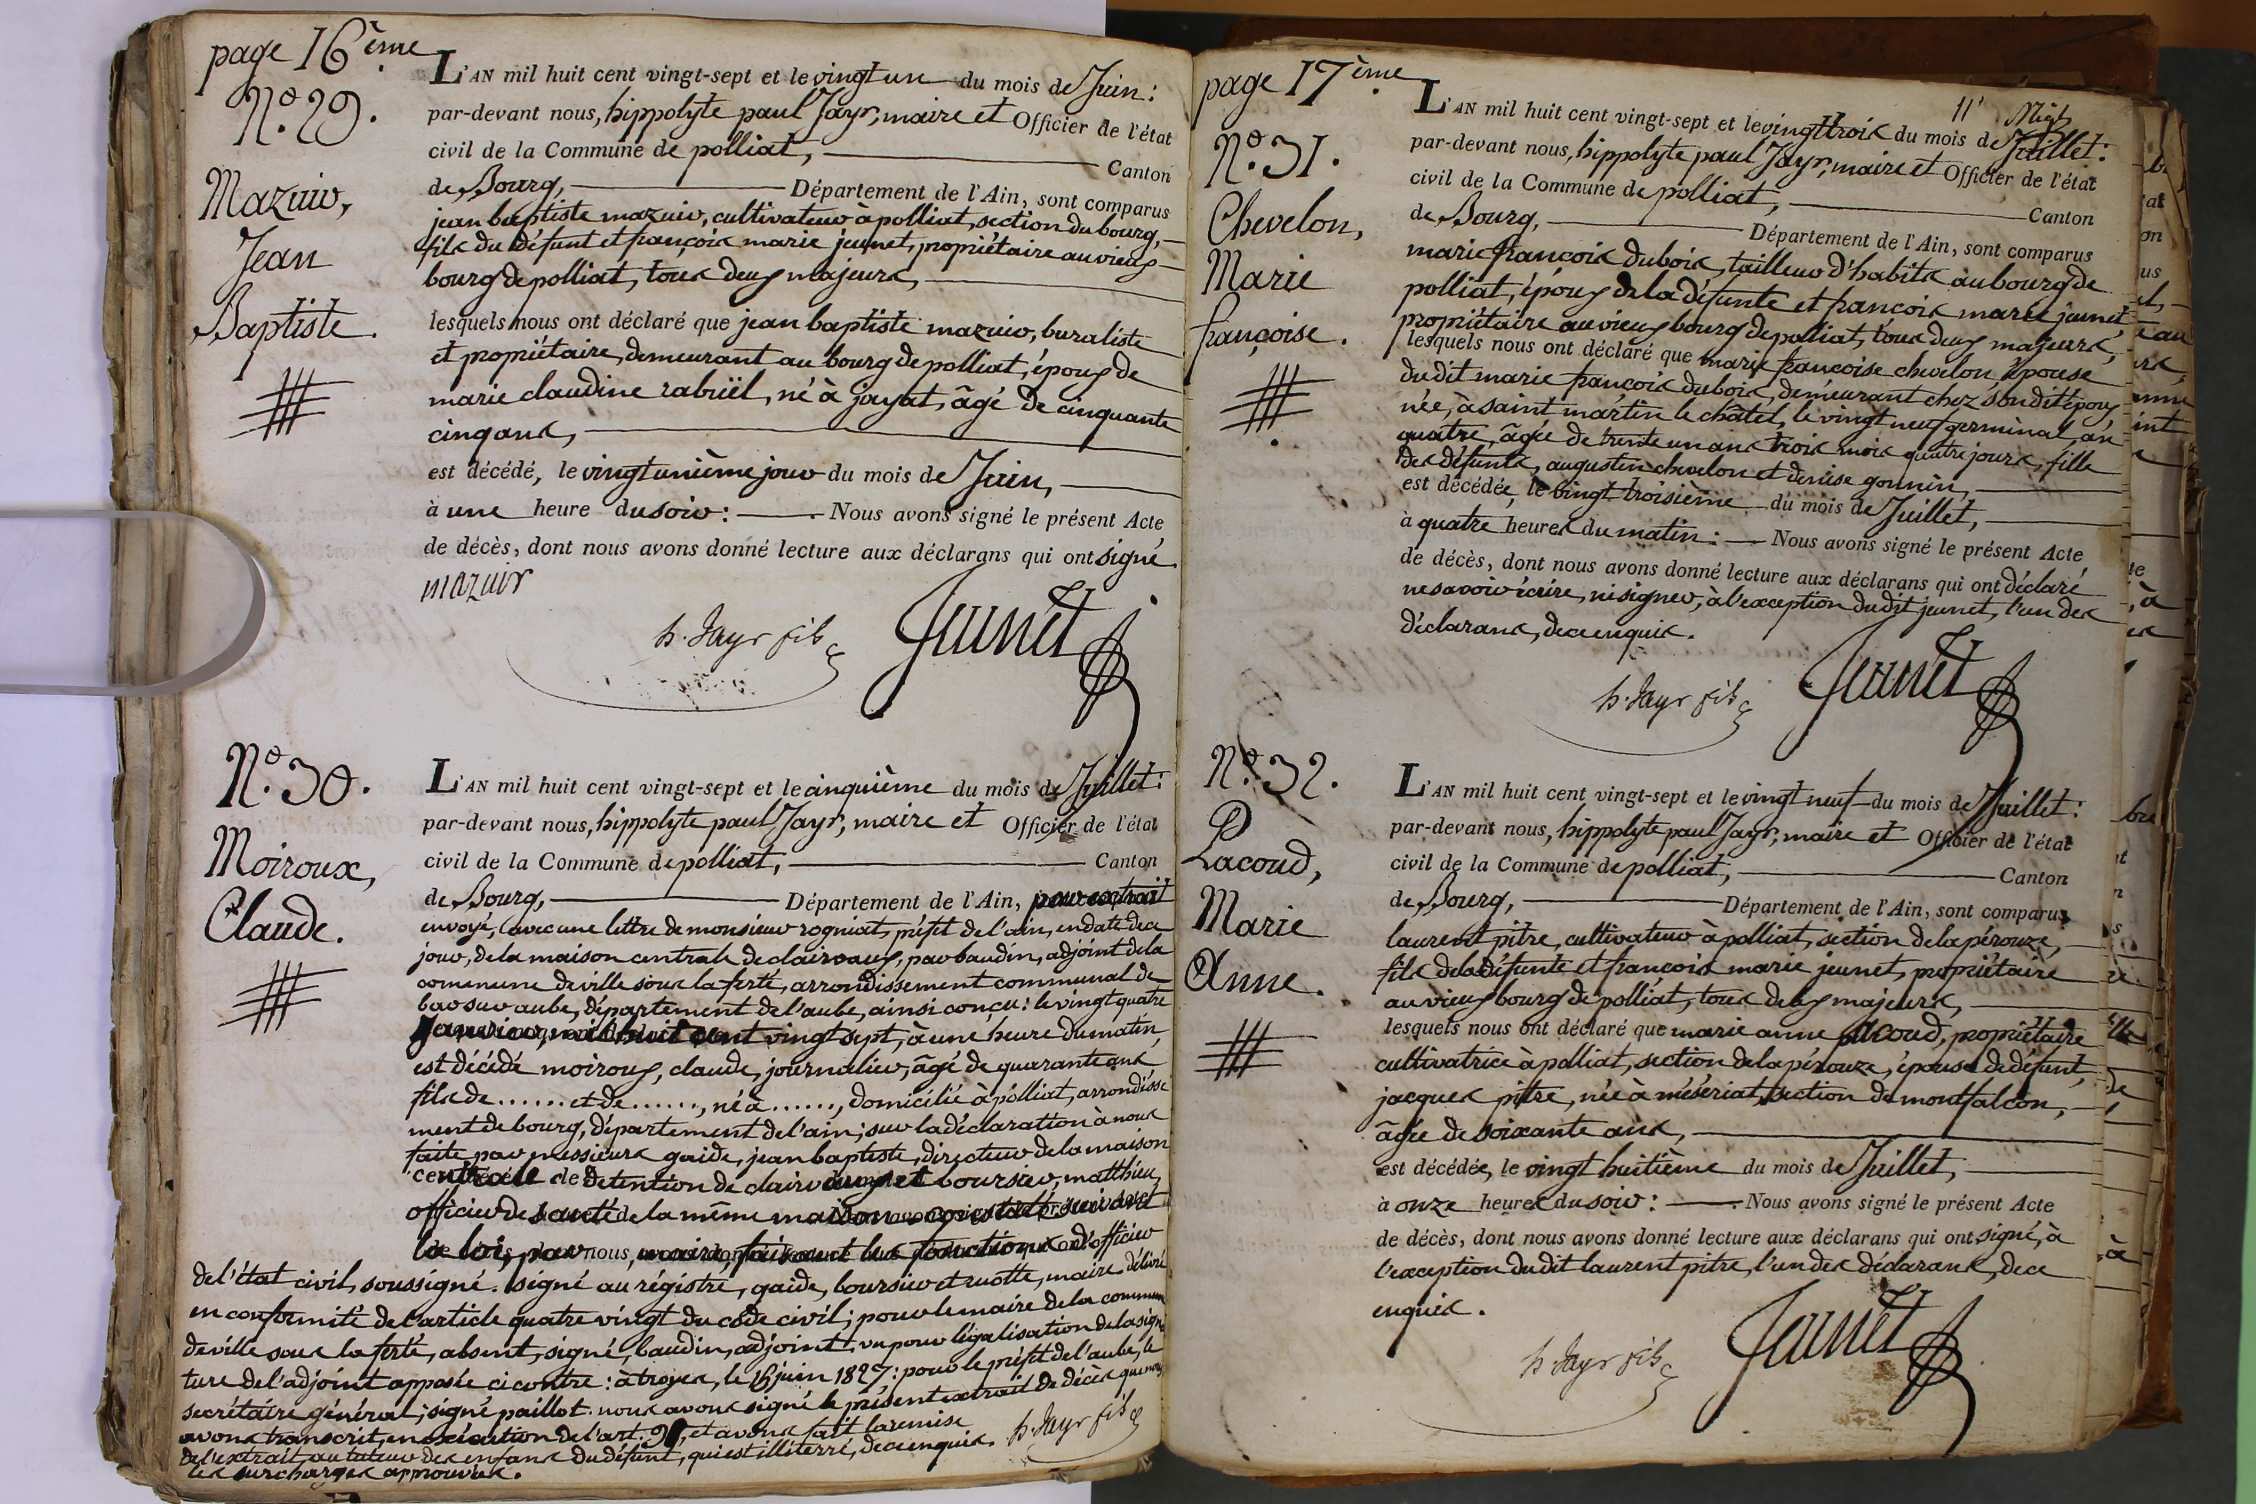 page 16ème
N.° 29.
Mazuir,
Jean
Baptiste.
L'AN mil huit cent vingt-sept et le vingt un du mois de Juin:
par-devant nous, hippolyte paul Jayr, maire et Officier de l'état
civil de la Commune de polliat, Canton
de Bourg, Département de l'Ain, sont comparus
jean baptiste mazuir, cultivateur à polliat, section du bourg,
fils du défunt et françois marie jeunet, propriétaire au vieux
bourg de polliat, tous deux majeurs,
lesquels nous ont déclaré que jean baptiste mazuir, buraliste
et propriétaire, demeurant au bourg de polliat, époux de
marie claudine rabuël, né à jayat, âgé de cinquante
cinq ans,
est décédé, le vingt unième jour du mois de Juin,
à une heure du soir: Nous avons signé le présent Acte
de décès, dont nous avons donné lecture aux déclarans qui ont signé
mazuir
h. Jayr fils Jeunet
N.° 30.
Moiroux,
Claude.
L'AN mil huit cent vingt-sept et le cinquième du mois de Juillet:
par-devant nous, hippolyte paul Jayr, maire et Officier de l'état
civil de la Commune de polliat, Canton
de Bourg, Département de l'Ain, par extrait
envoyé, avec une lettre de monsieur rogniat, préfet de l'ain, en date de ce
jour, de la maison centrale de clairvaux, par baudin, adjoint de la
commune de ville sous la ferté, arrondissement communal de
bar sur aube, département de l'aube, ainsi conçu: le vingt quatre
Janvier, mil huit cent vingt sept, à une heure du matin,
est décédé moiroux, claude, journalier, âgé de quarante ans
fils de ...... et de ......, né à ......, domicilié à polliat, arrondisse
ment de bourg, département de l'ain; sur la déclaration à nous
faite par messieurs gaide, jean baptiste, directeur de la maison
centrale de détention de clairvaux et boursier, matthieu,
officier de santé de la même maison. constaté suivant
la loi, par nous, maire, faisant les fonctions d'officier
de l'état civil, soussigné. signé au régistre, gaide, boursier et ruotte, maire. délivré
en conformité de l'article quatre vingt du code civil; pour le maire de la commune
de ville sous la ferté, absent, signé, baudin, adjoint. vu pour légalisation de la signa
ture de l'adjoint apposée ci contre: à troyes, le 16 juin 1827: pour le préfet de l'aube, le
secrétaire général; signé paillot. nous avons signé le présent extrait de décès que nous
avons transcrit, en exécution de l'art. et avons fait la remise
de l'extrait au tuteur des enfans du défunt, qui est illiterré, de ce enquis. h. Jayr fils
les surcharges approuvées.
page 17ème
N.° 31.
Chevelon,
Marie
françoise.
L'AN mil huit cent vingt-sept et le vingt trois du mois de Juillet:
par-devant nous, hippolyte paul Jayr, maire et Officier de l'état
civil de la Commune de polliat, Canton
de Bourg, Département de l'Ain, sont comparus
marie françois dubois, tailleur d'habits au bourg de
polliat, époux de la défunte et françois marie jeunet
propriétaire au vieux bourg de polliat, tous deux majeurs,
lesquels nous ont déclaré que marie françoise chevelon épouse
dudit marie françois dubois, demeurant chez sondit époux
née, à saint martin le châtel, le vingt neuf germinal, an
quatre, âgée de trente un ans trois mois quatre jours, fille
des défunts, augustin chevelon et denise gonnin,
est décédée, le vingt-troisième du mois de Juillet,
à quatre heures du matin: Nous avons signé le présent Acte
de décès, dont nous avons donné lecture aux déclarans qui ont déclaré
ne savoir écrire, ni signer, à l'exception dudit jeunet, l'un des
déclarans, de ce enquis.
h. Jayr fils Jeunet
N.° 32.
Lacoud,
Marie
Anne.
L'AN mil huit cent vingt-sept et le vingt neuf du mois de Juillet:
par-devant nous, hippolyte paul Jayr, maire et Officier de l'état
civil de la Commune de polliat, Canton
de Bourg, Département de l'Ain, sont comparus
laurent pitre, cultivateur à polliat, section de la pérouze,
fils de la défunte et françois marie jeunet, propriétaire
au vieux bourg de polliat, tous deux majeurs,
lesquels nous ont déclaré que marie anne lacoud, propriétaire
cultivatrice à polliat, section de la pérouze, épouse de défunt,
jacques pitre, née à mésériat, section de montfalcon,
âgée de soixante ans,
est décédée, le vingt huitième du mois de Juillet,
à onze heures du soir: Nous avons signé le présent Acte
de décès, dont nous avons donné lecture aux déclarans qui ont signé, à
l'exception dudit laurent pitre, l'un des déclarans, de ce
enquis.
h. Jayr fils Jeunet